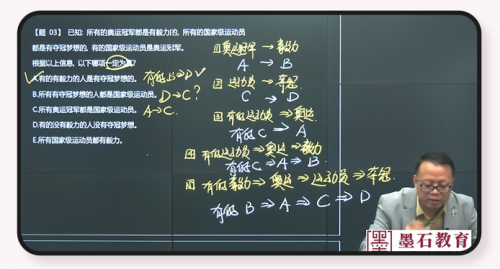 【题 03】 已知: 所有的奥运冠军都是有毅力的, 所有的国家级运动员
都是有夺冠梦想的, 有的国家级运动员是奥运冠军。
根据以上信息, 以下哪项一定为真?
A.有的有毅力的人是有夺冠梦想的。
B.所有有夺冠梦想的人都是国家级运动员。
C.所有奥运冠军都是国家级运动员。
D.有的没有毅力的人没有夺冠梦想。
E.所有国家级运动员都有毅力。
有的B→D√
D→C?
A→C.
①奥运冠军→毅力
A → B
② 运动员→夺冠
C → D
③ 有的运动员→奥运
有的C → A
④ 有的运动员→奥运→毅力
有的C→A→B
⑤ 有的毅力→奥运→运动员→夺冠
有的 B → A → C → D
墨石教育